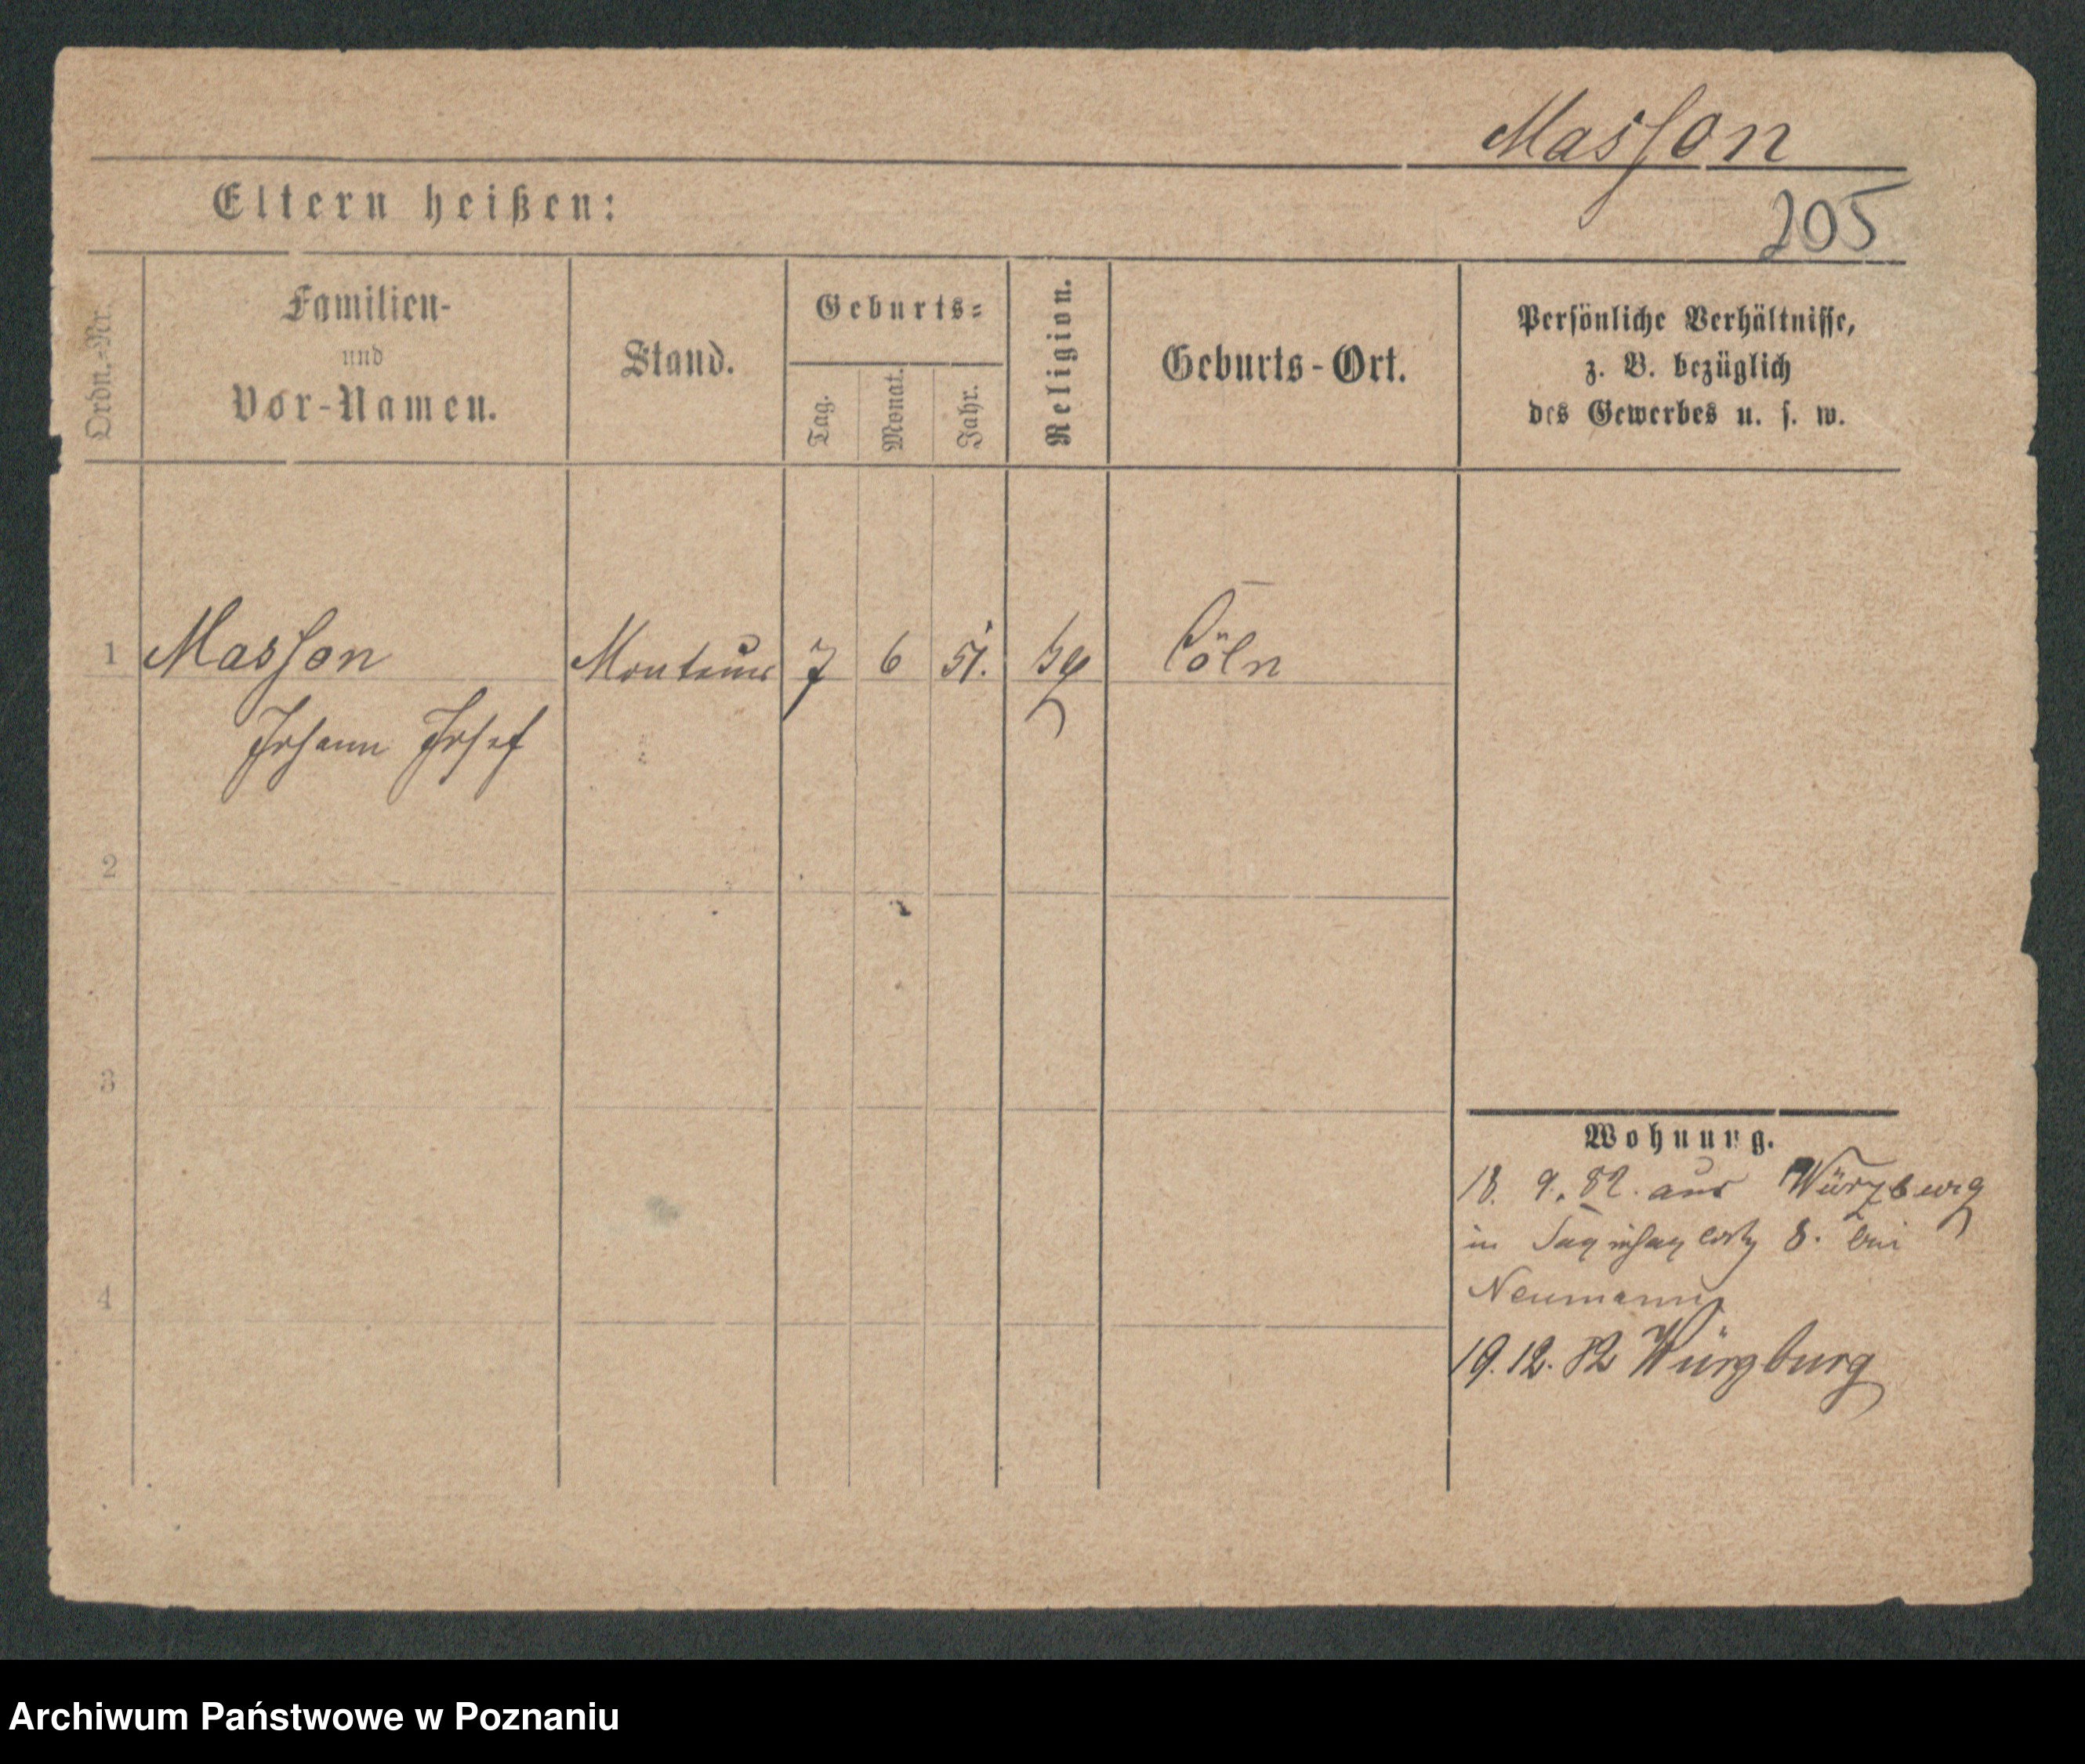 Masson
Eltern heißen:
205
Ordn.-Nr.
Familien-
und
Vor-Namen.
Stand.
Geburts-
Tag.
Monat.
Jahr.
Religion.
Geburts-Ort.
Persönliche Verhältnisse,
z. B. bezüglich
des Gewerbes u. s. w.
1 Masson Monteur 7 6 51. Cöln
Johann Josef
2
3
4
Wohnung.
18. 9. 82. aus Würzburg
in 8. bei
Neumann
19.12.82 Würzburg
Archiwum Państwowe w Poznaniu